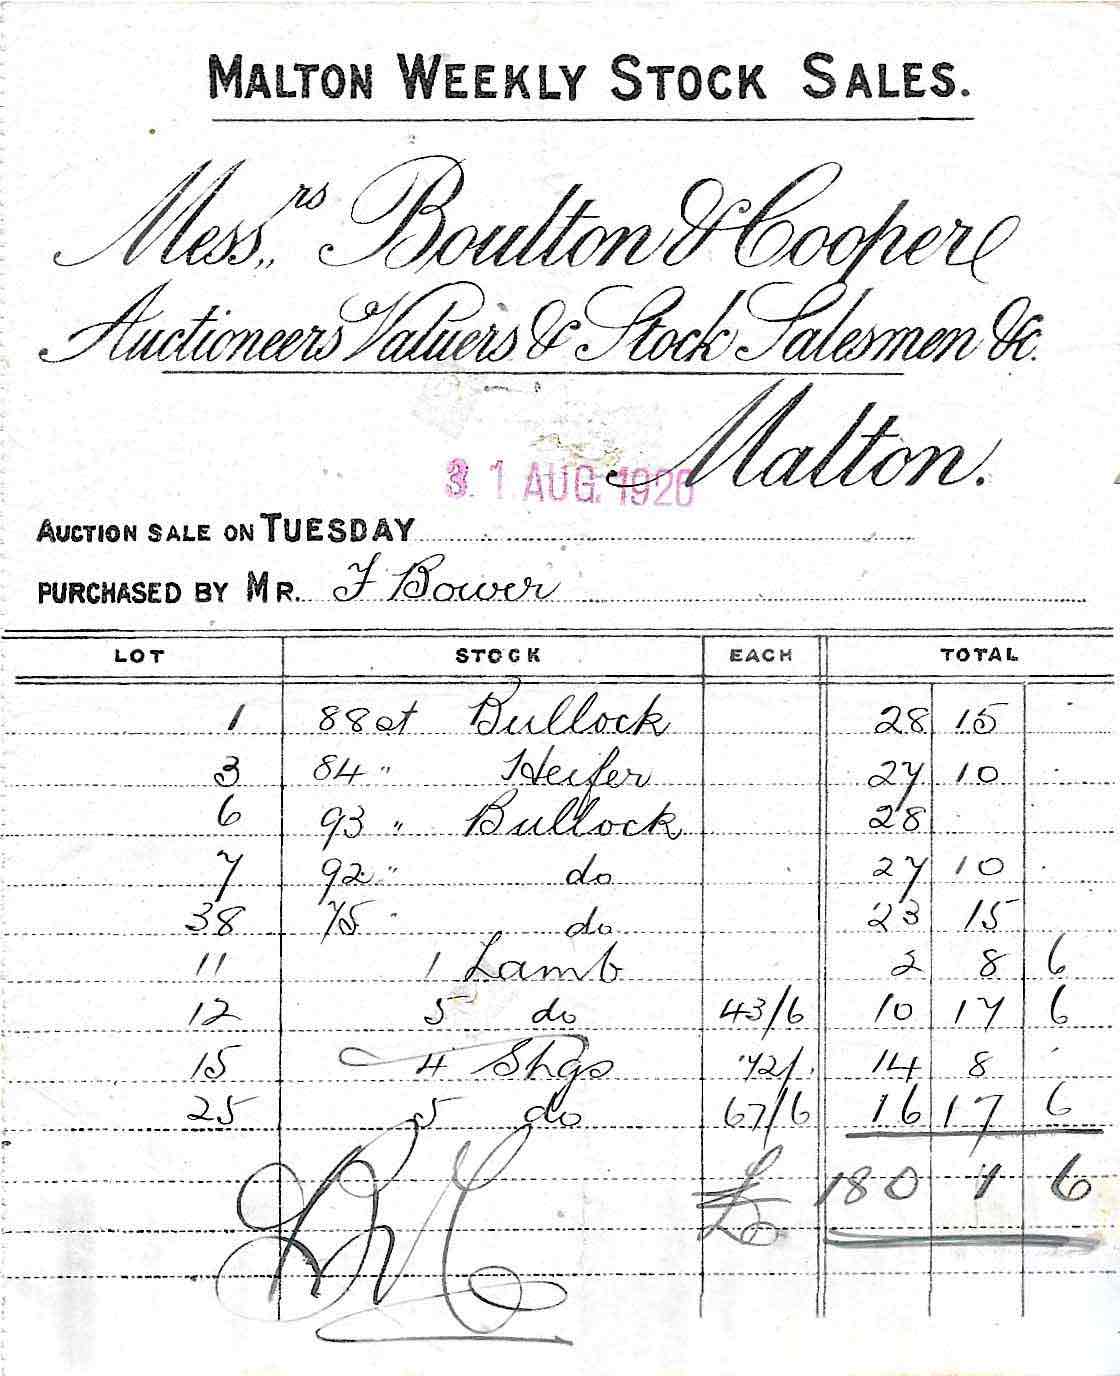 MALTON WEEKLY STOCK SALES.
Mess,,rs Boulton & Cooper
Auctioneers Valuers & Stock Salesmen &c.
Malton.
31 AUG. 1926
AUCTION SALE ON TUESDAY
PURCHASED BY MR. F Bower
LOT STOCK EACH TOTAL
1 88 st Bullock 28 15 .
3 84 " Heifer 27 10 .
6 93 " Bullock 28
7 92 " do 27 10 .
38 75 " do 23 15
11 1 Lamb 2 8 6
12 5 do 43/6 10 17 6
15 4 Shgs 72/. 14 8 .
25 5 do 67/6 16 17 6
£ 180 1 6